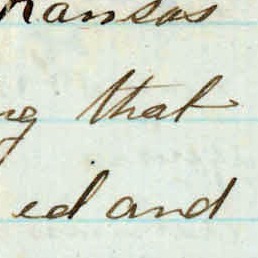 Kansas
ng that
ed and